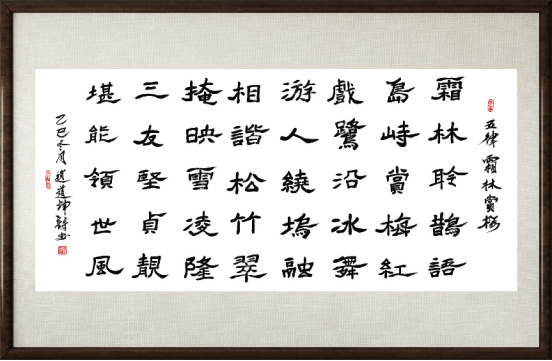 五律 霜林賞梅
霜林聆鵲語
島峙賞梅紅
戲鷺沿冰舞
游人繞塢融
相諧松竹翠
掩映雪凌隆
三友堅貞靚
堪能領世風
乙巳冬月 趙道坤詩書